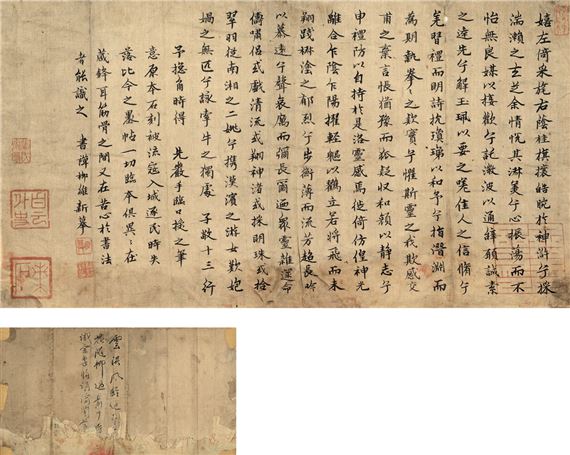 嬉左倚采旄右蔭桂旗攘皓腕於神滸兮採
湍瀨之玄芝余情悅其淑美兮心振蕩而不
怡無良媒以接歡兮託微波以通辭願誠素
之達先兮解玉珮以要之嗟佳人之信脩兮
羌習禮而明詩抗瓊珶以和予兮指潛淵而
為期執拳〻之款實兮懼斯靈之我欺感交
甫之棄言悵猶豫而狐疑收和顏以靜志兮
申禮防以自持於是洛靈感焉徙倚傍偟神光
離合乍陰乍陽擢輕軀以鶴立若將飛而未
翔踐椒塗之郁烈兮步衡薄而流芳超長吟
以慕遠兮聲哀厲而彌長爾迺衆靈雜遝命
儔嘯侶或戲清流或翔神渚或採明珠或拾
翠羽從南湘之二姚兮攜漢濱之游女歎匏
媧之無匹兮詠牽牛之獨處 子敬十三行
予摠角時得 先嚴手臨口授之筆
意原本石刻被流寇入城逐民時失
落比今之墨帖一切臨本俱異〻在
藏鋒耳筋骨之間又在苦心於書法
者能識之 書禪柳維新摹